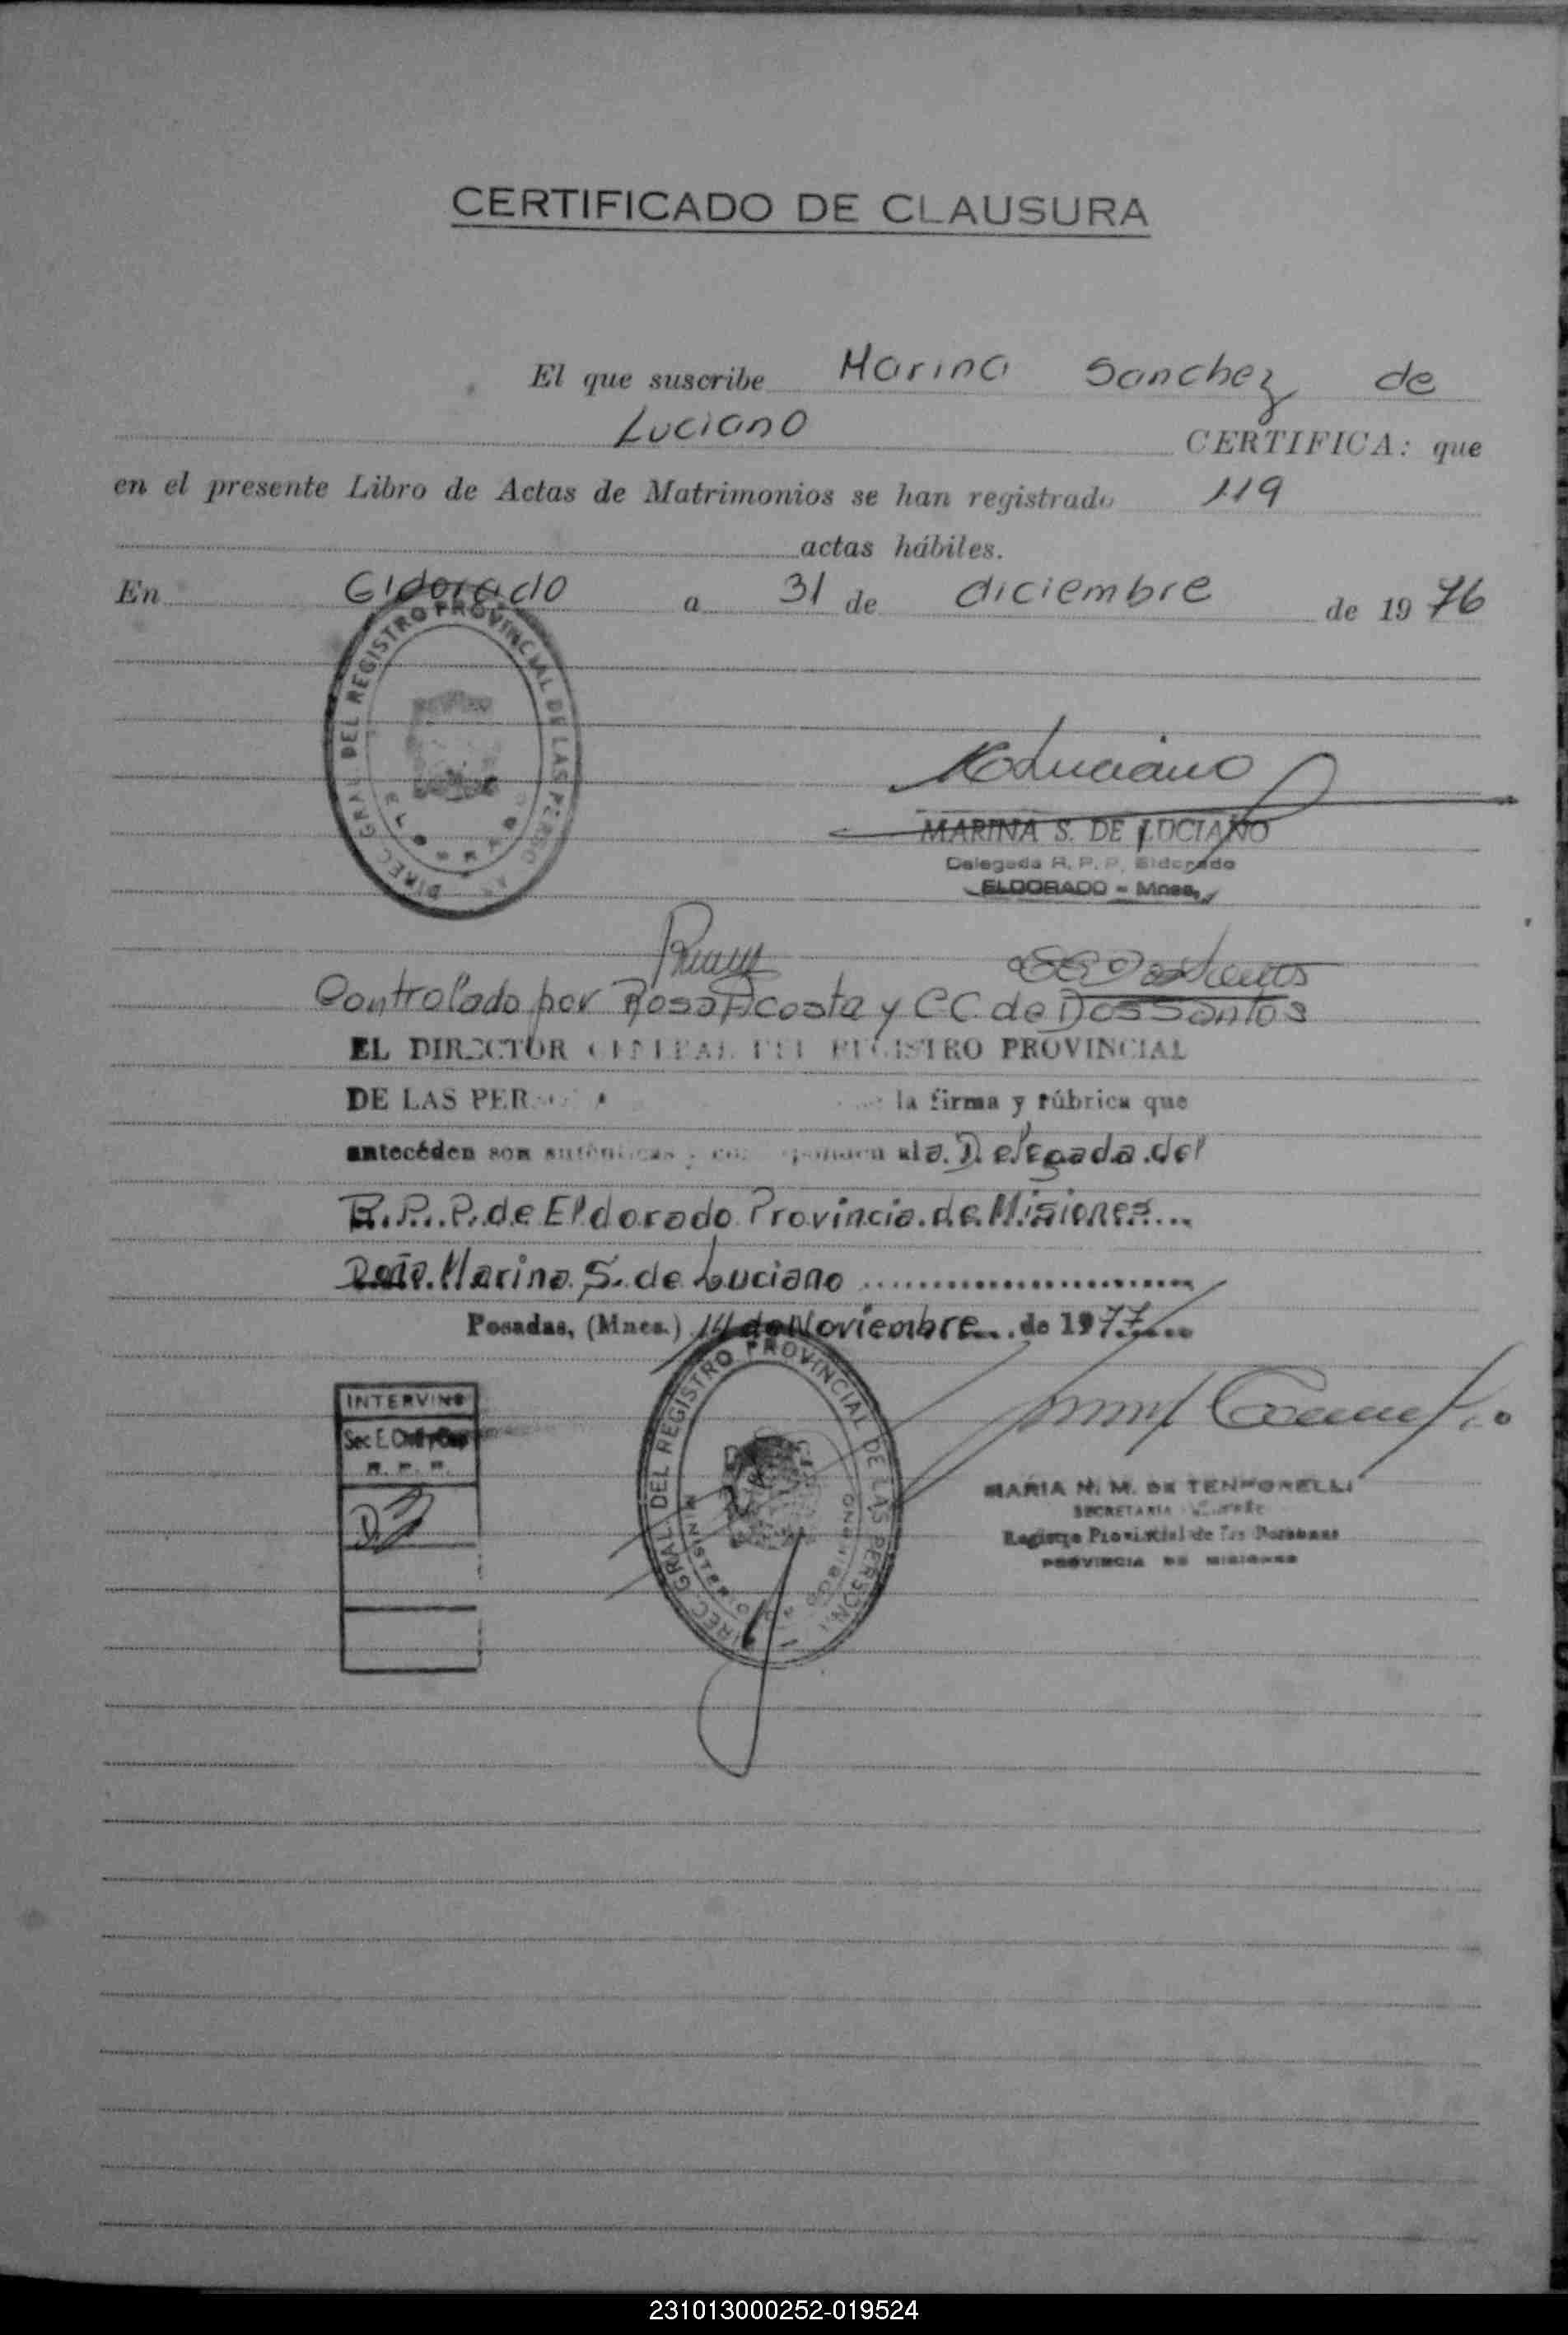 CERTIFICADO DE CLAUSURA
El que suscribe Marina Sanchez de
Luciano CERTIFICA: que
en el presente Libro de Actas de Matrimonios se han registrado 119
actas hábiles.
En Eldorado a 31 de diciembre de 1976
DIREC. GRAL. DEL REGISTRO PROVINCIAL DE LAS PERSO
Luciano
MARINA S. DE LUCIANO
Delegada R. P. P. Eldorado
ELDORADO - Mnes.
Controlado por Rosa Acosta y C.C. de Dos Santos
EL DIRECTOR GENERAL DEL REGISTRO PROVINCIAL
DE LAS PER la firma y rúbrica que
antecéden son auténticas y corresponden a la Delegada del
R.P.P. de Eldorado Provincia de Misiones
Doña Marina S. de Luciano
Posadas, (Mnes.) 14 de Noviembre de 1977
DIREC. GRAL. DEL REGISTRO PROVINCIAL DE LAS PERSON
MINISTERIO DE GOBIERNO
INTERVINO
Sec. E.
R. P. P.
MARIA N. M. DE TEMPORELLI
SECRETARIA
Registro Provincial de las Personas
PROVINCIA DE MISIONES
231013000252-019524